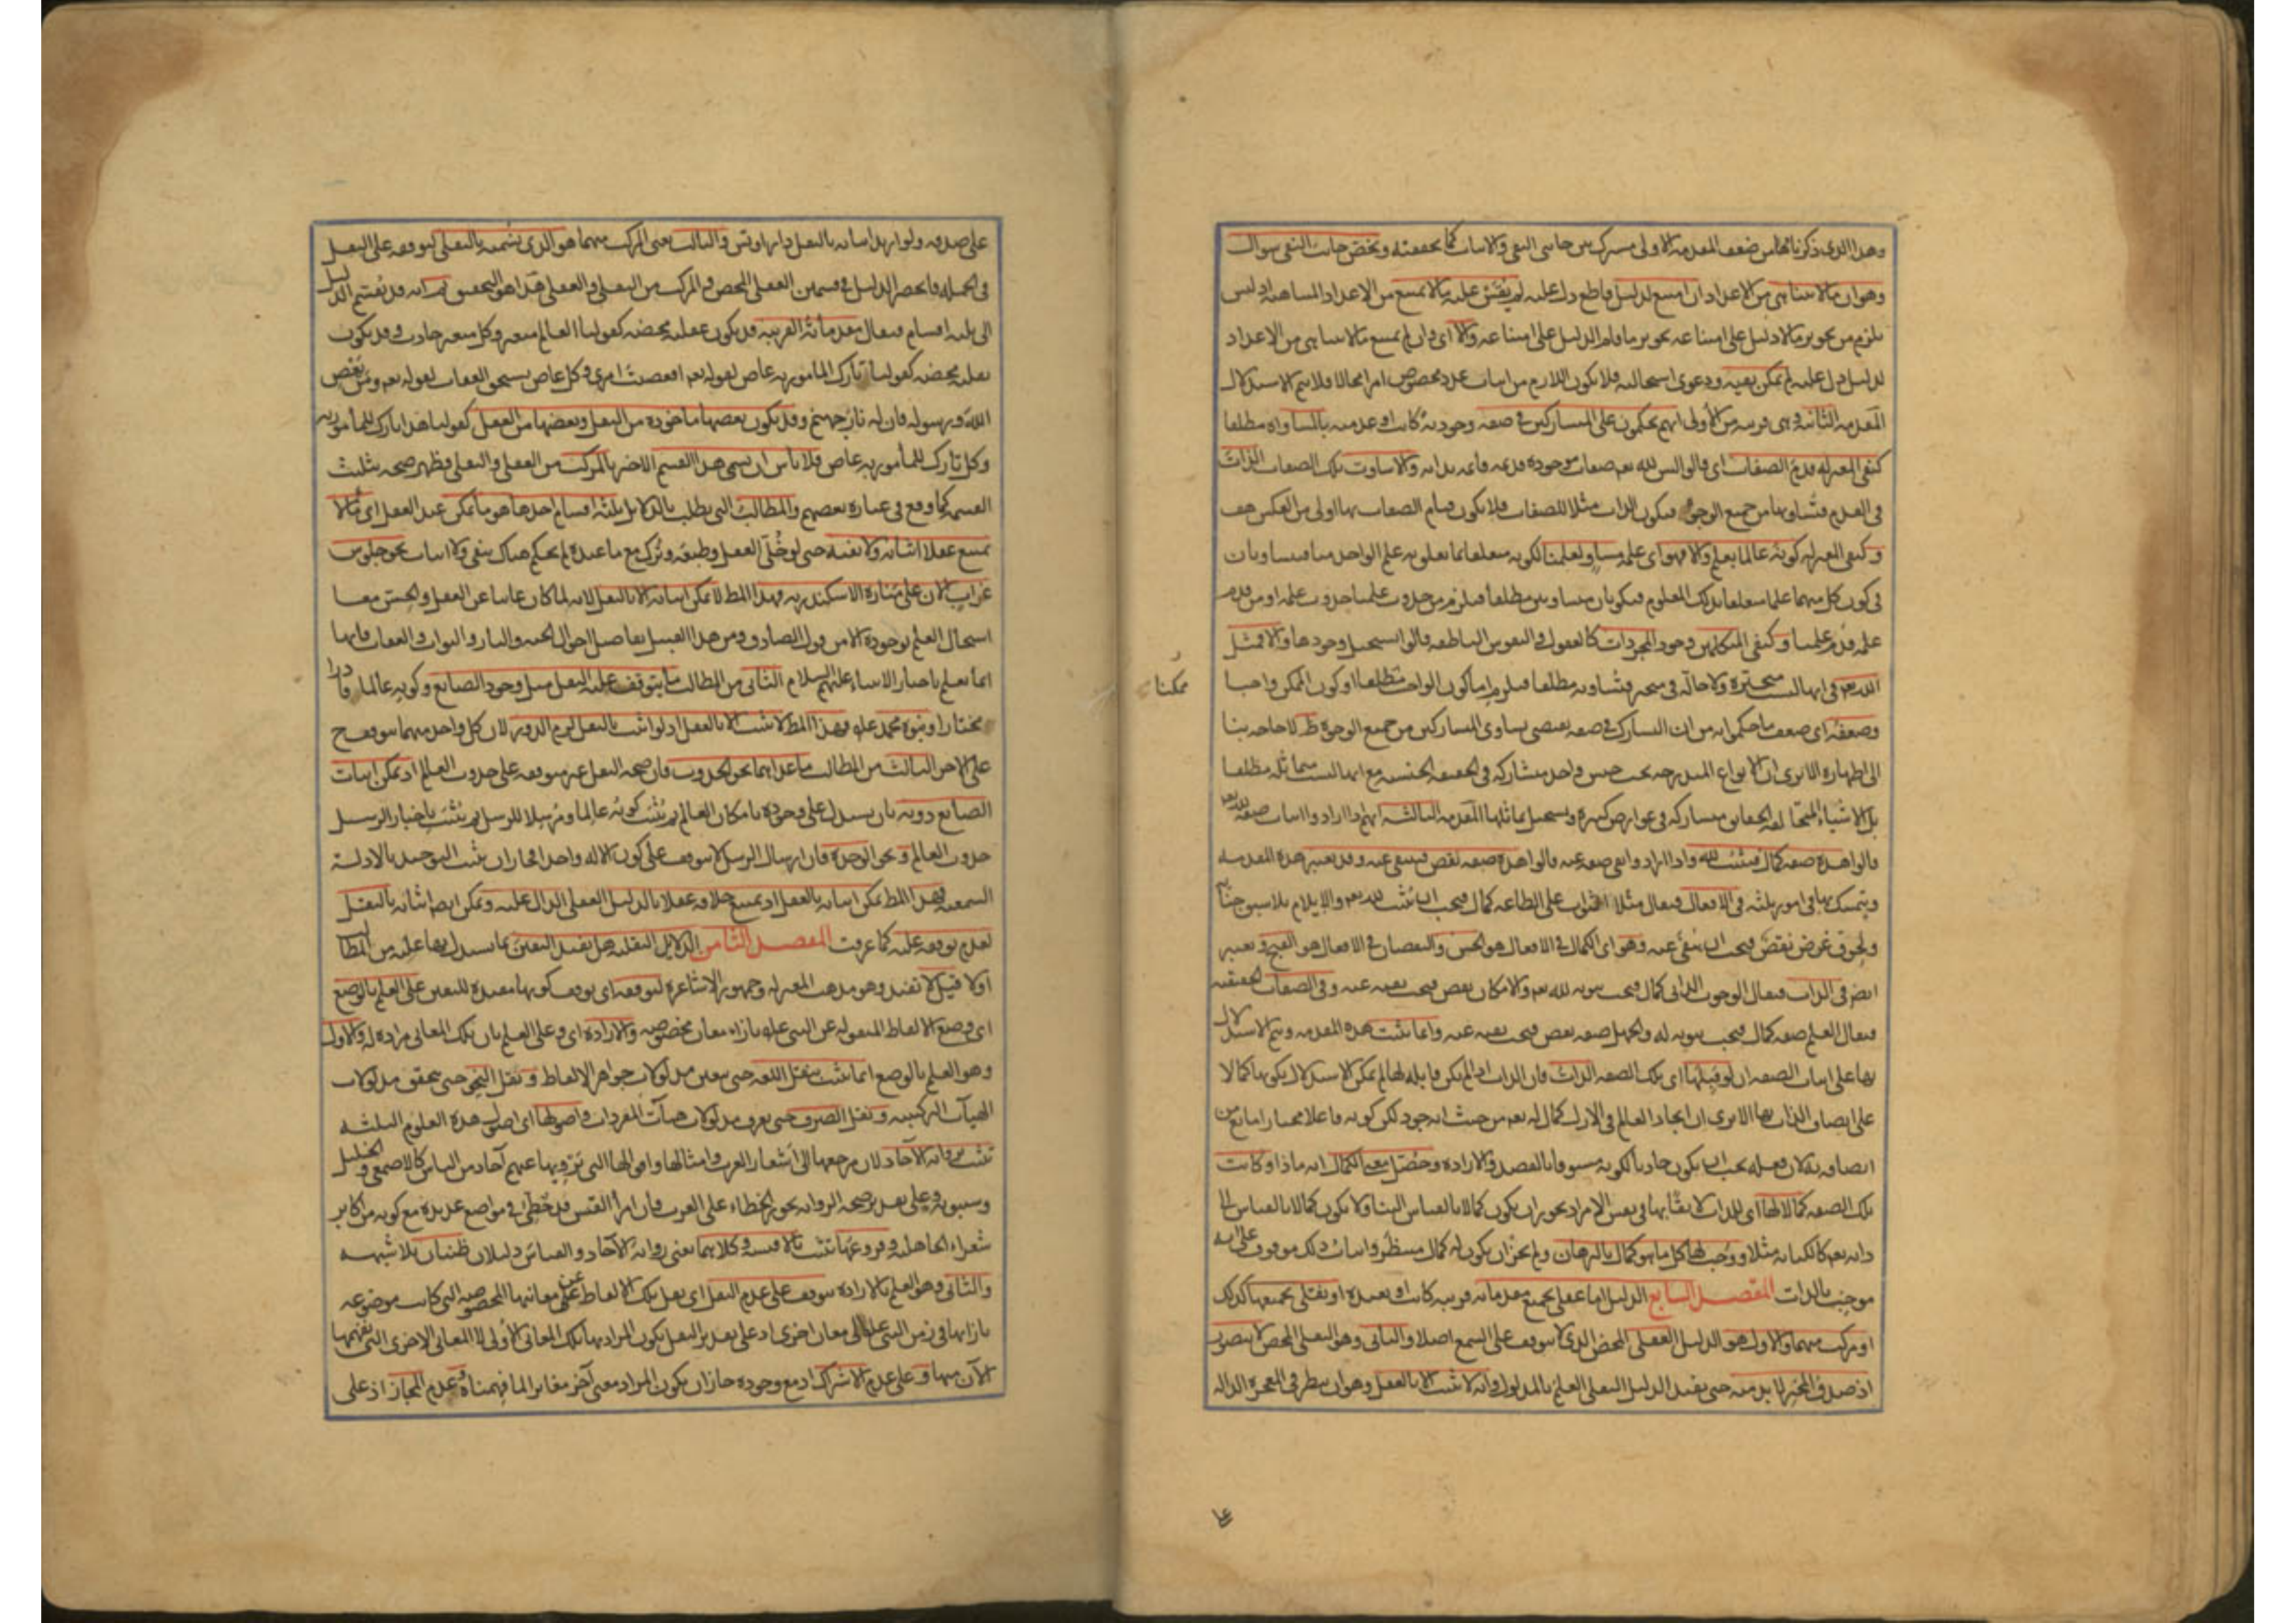 وهذا الذي ذكرناه من ضعف المقدمة الأولى مشترك بين جانبي النفي والاثبات كما تحققته ويختص جانب النفي سؤال
وهو ان ما لا يتناهى من الاعداد ان امتنع لدليل قاطع دل عليه لم يقس عليه ما لا يمتنع من الاعداد المتناهية اذ ليس
يلزم من تجويز ما لا دليل على امتناعه تجويز ما قام الدليل على امتناعه والا اى وان لم يمتنع ما لا يتناهى من الاعداد
لدليل دل عليه لم يمكن نفيه ودعوى استحالته فلا يكون اللازم من اثبات عدد مخصوص امرا محالا فلا يتم الاستدلال
المقدمة الثانية وهى قريبة من الأولى انهم يحكمون على المتشاركين في صفة وجودية كانت او عدمية بالمساواة مطلقا
كنفى المعتزلة قدم الصفات اى قالوا ليس لله تعم صفات موجودة قديمة قائمة بذاته والا ساوت تلك الصفات الذات
في القدم فتساويها من جميع الوجوه فيكون الذات مثلا للصفات فلا يكون قيام الصفات بها اولى من العكس هف
وكنفى المعتزلة كونه عالما بعلم والا فهو اى علمه مساو لعلمنا لكونه متعلقا بما تعلق به علم الواحد منا فيتساويان
في كون كل منهما علما متعلقا بذلك المعلوم فيكونان متساويين مطلقا فيلزم من حدوث علمنا حدوث علمه او من قدم
علمه قدم علمنا وكنفى المتكلمين وجود المجردات كالعقول والنفوس الناطقة قالوا يستحيل وجودها والا فمثل
الله تعم في انها ليست متحيزة ولا حالة في متحيز فتساويه مطلقا فيلزم اما كون الواجب ممكنا او كون الممكن واجبا
ممكنا
وضعفه اى ضعف ما حكموا به من ان التشارك في صفة يقتضى تساوى المتشاركين من جميع الوجوه ظ لا حاجة بنا
الى اظهاره الا ترى ان الانواع المندرجة تحت جنس واحد متشاركة في الحقيقة الجنسية مع انها ليست متماثلة مطلقا
بل الاشياء المتخالفة الحقائق متشاركة في عوارض كثيرة ويستحيل تماثلها المقدمة الثالثة انهم اذا ارادوا اثبات صفة لله تعم
قالوا هذه صفة كمال فيثبت لله واذا ارادوا نفى صفة عنه قالوا هذه صفة نقص فينتفى عنه وقد تعتبر هذه المقدمة
ويتمسك بها في امور ثلثة في الافعال فيقال مثلا الثواب على الطاعة كمال فيجب ان يثبت لله تعم والايلام بلا سبق جناية
ولحوق غرض نقص فيجب ان ينفى عنه وهو اى الكمال في الافعال هو الحسن والنقصان في الافعال هو القبح وتعتبر
ايضا في الذات فيقال الوجوب الذاتى كمال فيجب ثبوته لله تعم والامكان نقص فيجب نفيه عنه وفي الصفات الحقيقية
فيقال العلم صفة كمال فيجب ثبوته له والجهل صفة نقص فيجب نفيه عنه وانما يثبت هذه المقدمة ويتم الاستدلال
بها على اثبات الصفة ان لو قبلها اى تلك الصفة الذات فان الذات اذا لم يكن قابلة لها لم يمكن الاستدلال بكونها كمالا
على اتصاف الذات بها الا ترى ان ايجاد العالم في الازل كمال له تعم من حيث انه جود لكن كونه فاعلا مختارا مانع من
اتصافه به لان فعله يجب ان يكون حادثا لكونه مسبوقا بالقصد والارادة وحصل معنى الكمال انه ماذا وكانت
تلك الصفة كمالا لها اى للذات لا بقاياها في نفس الامر اذ يجوز ان يكون كمالا بالقياس الينا ولا يكون كمالا بالقياس الى
ذاته تعم كالكتابة مثلا ووجب لها كل ما هو كمال بالبرهان ولم يجز ان يكون له كمال منتظر واثبات ذلك موقوف على انه
موجب بالذات المقصد السابع الدليل اما عقلى بجميع مقدماته قريبة كانت او بعيدة او نقلى بجميعها كذلك
او مركب منهما والاول هو الدليل العقلى المحض الذى لا يتوقف على السمع اصلا والثانى وهو النقلى المحض لا يتصور
اذ صدق المخبر لا بد منه حتى يفيد الدليل النقلى العلم بالمدلول وانه لا يثبت الا بالعقل وهو ان ينظر في المعجزة الدالة
على صدقه ولو اريد اثباته بالنقل دار او تس والثالث يعنى المركب منهما هو الذى نسميه بالنقلى لتوقفه على النقل
في الجملة فانحصر الدليل في قسمين العقلى المحض والمركب من النقلى والعقلى هذا هو التحقيق ثم انه قد يقسم الدليل
الى ثلثة اقسام فيقال مقدماته القريبة قد يكون عقلية محضة كقولنا العالم متغير وكل متغير حادث وقد يكون
نقلية محضة كقولنا تارك المأمور به عاص لقوله تعم افعصيت امرى وكل عاص يستحق العقاب لقوله تعم ومن يعص
الله ورسوله فان له نار جهنم وقد يكون بعضها مأخوذة من النقل وبعضها من العقل كقولنا هذا تارك للمأمور به
وكل تارك للمأمور به عاص فلا بأس ان يسمى هذا القسم الاخير بالمركب من العقلى والنقلى فظهر صحة تثليث
القسمة كما وقع في عبارة بعضهم والمطالب التى يطلب بالدلايل ثلثة اقسام احدها هو ما يمكن عند العقل اى ما لا
يمتنع عقلا اثباته ولا نفيه حتى لو خلى العقل وطبعه وترك مع ما عنده لم يحكم هناك بنفى ولا اثبات نحو جلوس
غراب الان على منارة الاسكندرية فهذا المط لا يمكن اثباته الا بالنقل لانه لما كان غائبا عن العقل والحس معا
استحال العلم بوجوده الا من قول الصادق ومن هذا القبيل تفاصيل احوال الجنة والنار والثواب والعقاب فانها
انما تعلم باخبار الانبياء عليهم السلام الثانى من المطالب ما يتوقف عليه النقل مثل وجود الصانع وكونه عالما قادرا
مختارا ونبوة محمد عليه فهذا المط لا يثبت الا بالعقل اذ لو اثبت بالنقل لزم الدور لان كل واحد منهما يتوقف ح
على الاخر الثالث من المطالب ما عداهما نحو الحدوث فان صحة النقل غير متوقفة على حدوث العالم اذ يمكن اثبات
الصانع دونه بان يستدل على وجوده بامكان العالم ثم يثبت كونه عالما ومرسلا للرسل ثم يثبت باخبار الرسل
حدوث العالم ونحو الوحدة فان ارسال الرسل لا يتوقف على كون الاله واحدا فجاز ان يثبت التوحيد بالادلة
السمعية فهذا المط يمكن اثباته بالعقل اذ يمتنع خلافه عقلا بالدليل العقلى الدال عليه ويمكن ايضا اثباته بالنقل
لعدم توقفه عليه كما عرفت المقصد الثامن الدلايل النقلية هل تفيد اليقين بما يستدل بها عليه من المطالب
اولا قيل لا تفيد وهو مذهب المعتزلة وجمهور الاشاعرة لتوقفه اى توقف كونها مفيدة لليقين على العلم بالوضع
اى وضع الالفاظ المنقولة عن النبى عليه بازاء معان مخصوصة والارادة اى وعلى العلم بان تلك المعانى مرادة له والاول
وهو العلم بالوضع انما يثبت بنقل اللغة حتى يتعين مدلولات جواهر الالفاظ ونقل النحو حتى يتحقق مدلولات
الهيآت التركيبية ونقل الصرف حتى يعرف مدلولات هيآت المفردات واصولها اى اصول هذه العلوم الثلثة
تثبت برواية الآحاد لان مرجعها الى اشعار العرب وامثالها واقوالها التى يرويها عنهم آحاد من الناس كالاصمعى والخليل
وسيبويه وعلى تقدير صحة الرواية يجوز الخطاء على العرب فان امرأ القيس قد خطئ في مواضع عديدة مع كونه من اكابر
شعراء الجاهلية وفروعها تثبت بالاقيسة وكلاهما يعنى رواية الآحاد والقياس دليلان ظنيان بلا شبهه
والثانى وهو العلم بالارادة يتوقف على عدم النقل اى نقل تلك الالفاظ عن معانيها المخصوصة التى كانت موضوعة
بازائها في زمن النبى عليه الى معان اخرى اذ على تقدير النقل يكون المراد بها تلك المعانى الأولى لا المعانى الاخرى التى نفهمها
الآن منها وعلى عدم الاشتراك اذ مع وجوده جاز ان يكون المراد معنى آخر مغايرا لما فهمناه وعدم المجاز اذ على